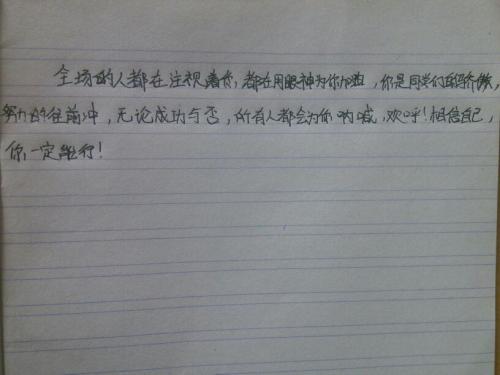 全场的人都在注视着你，都在用眼神为你加油，你是同学们的骄傲，
努力的往前冲，无论成功与否，所有人都会为你呐喊，欢呼！相信自己，
你一定能行！